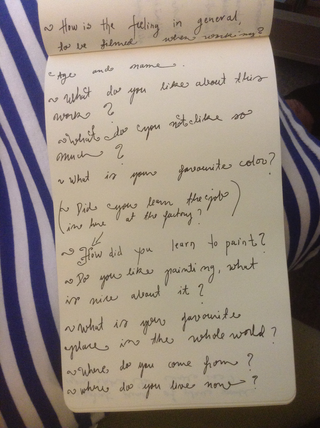 ~ How is the feeling in general,
to be filmed when working?
Age and name.
~ What do you like about this
work ?
~ What do you not like so
much ?
~ What is your favourite color?
~ Did you learn the job
in here at the factory?
~ How did you learn to paint?
~ Do you like painting, what
is nice about it ?
~ What is your favourite
place in the whole world?
~ Where do you come from ?
~ where do you live none ?